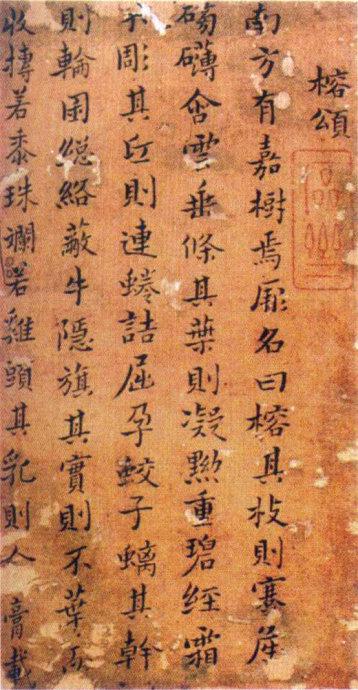 榕頌
南方有嘉樹焉厥名曰榕其枝則蹇產
礴含雲垂條其葉則凝黝重碧經霜
彫其丘則連蜷詰屈孕蛟子螭其幹
則輪囷絡蔽牛隱旗其實則不葉而
收摶若黍珠斕若雞頭其乳則人膏載